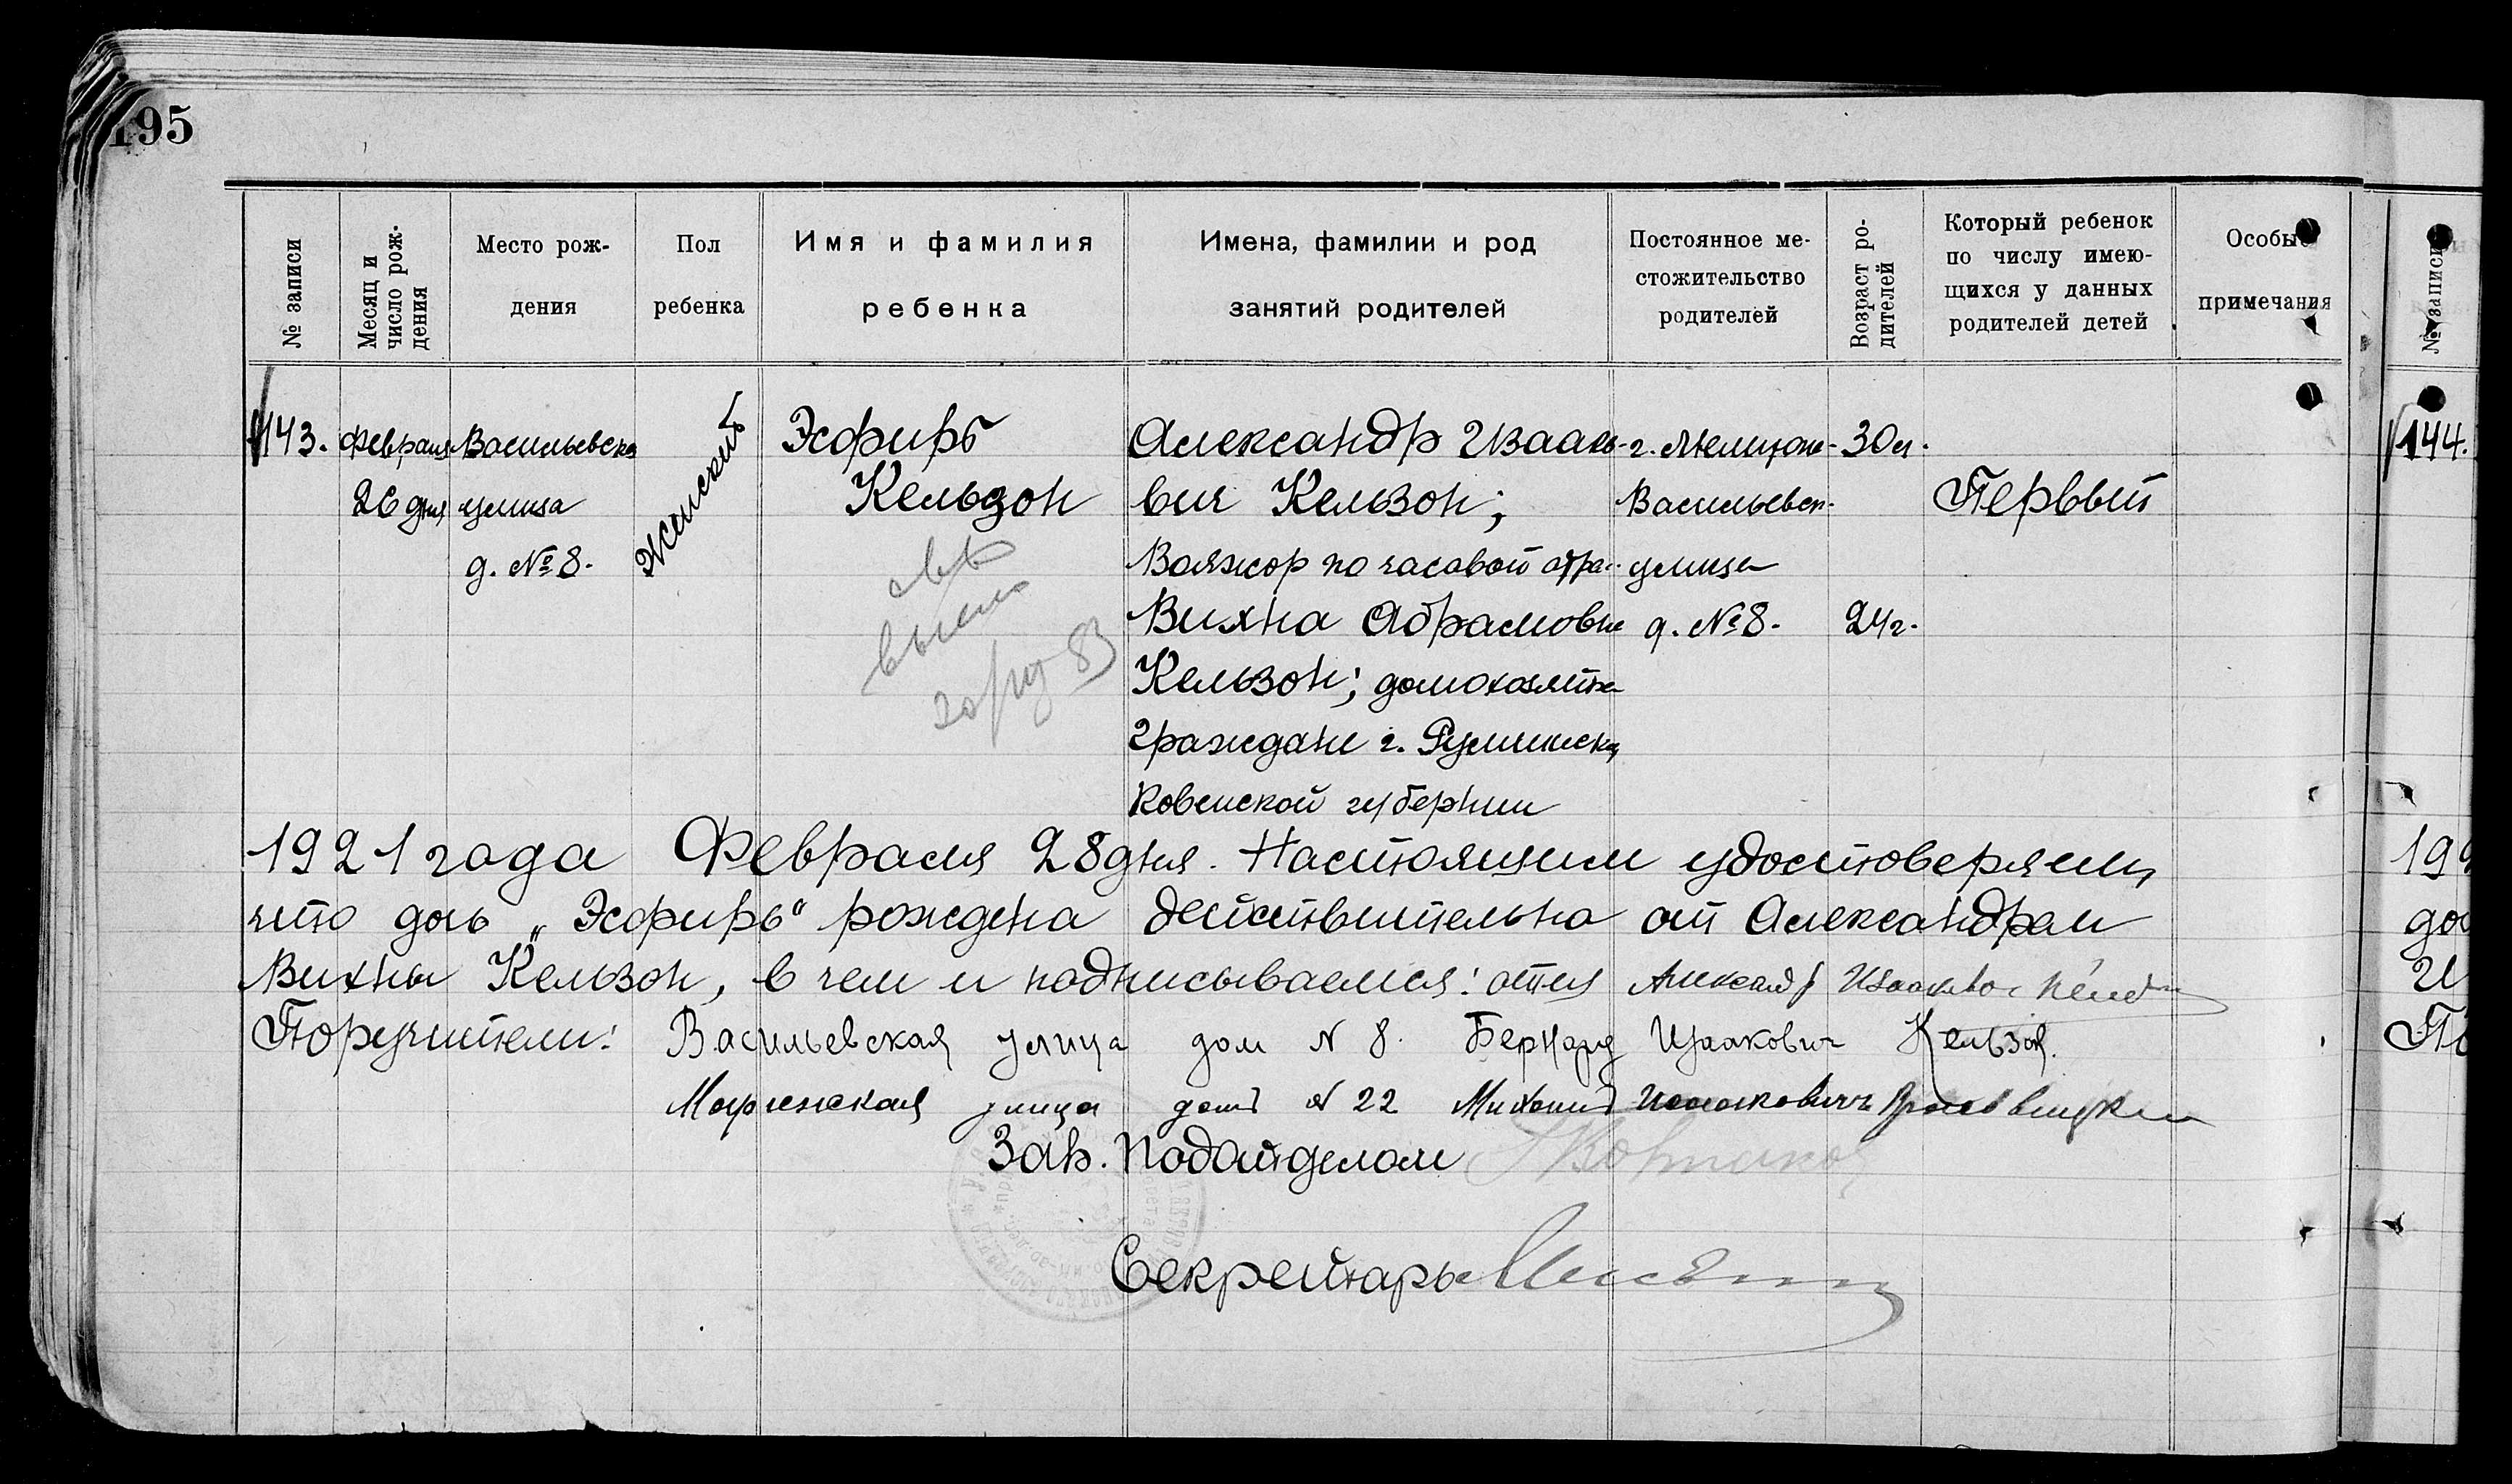 195
№ записи
Месяц и число рож-
дения
Место рож-
дения
Пол
ребенка
Имя и фамилия
ребенка
Имена, фамилии и род
занятий родителей
Постоянное ме-
стожительство
родителей
Возраст ро-
дителей
Который ребенок
по числу имею-
щихся у данных
родителей детей
Особые
примечания
№ записи
143.
Февраля
26 дня
Васильевска
улица
д. № 8.
Женский
Эсфирь
Кельзон
Александр Изаако-
вич Кельзон;
Вояжор по часовой
Вихна Абрамовна
Кельзон; домохозяйка
граждане г.
Ковенской губернии
г.
Васильевск.
улица
д. № 8.
30 л.
24 г.
Первый
144.
1921 года Февраля 28 дня. Настоящим удостоверяем,
что дочь „Эсфирь“ рождена действительно от Александра и
Вихны Кельзон, в чем и подписываемся: отец Александр
Поручители: Васильевская улица дом N 8. Бернард Изаакович Кельзон.
улица домъ N 22
Зав. Подотделом
Секретарь